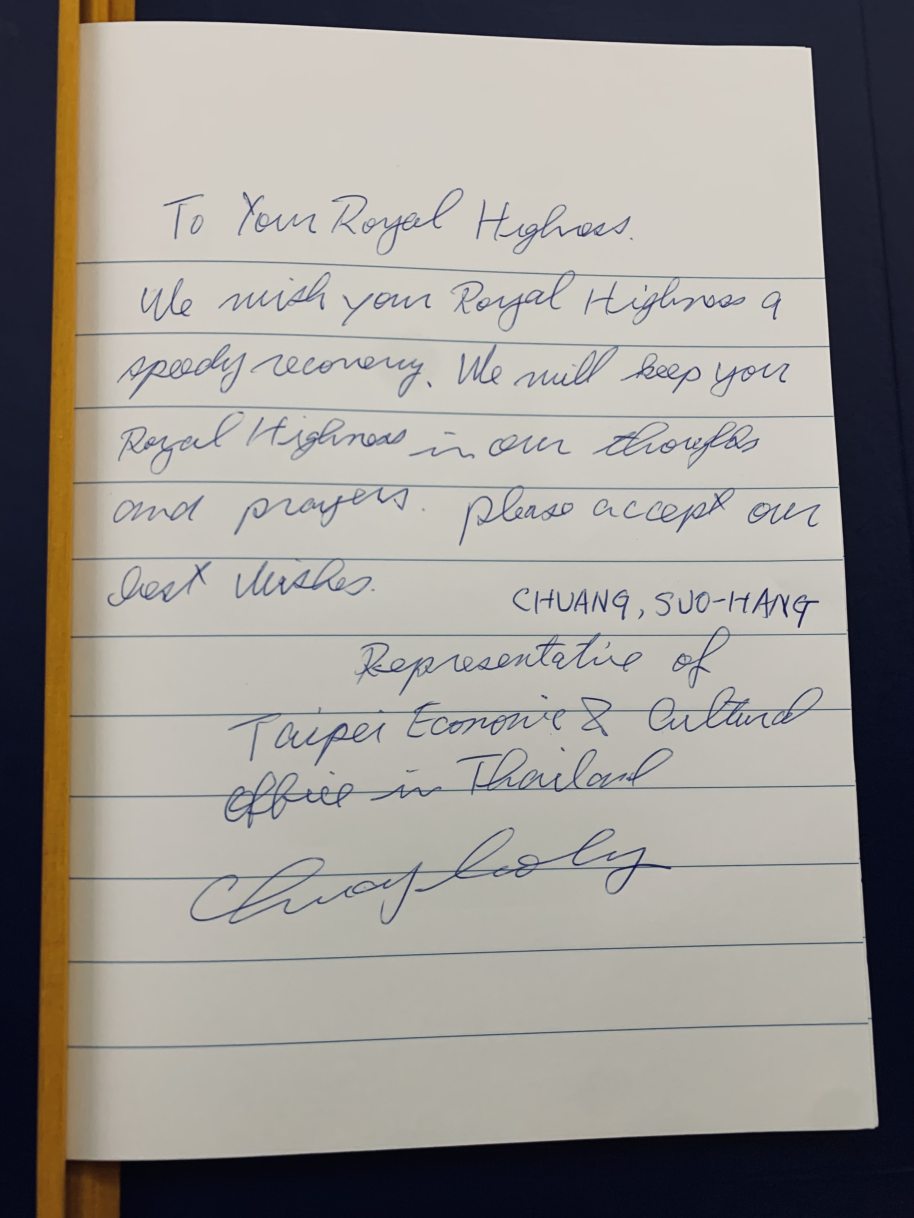 To Your Royal Highness.
We wish your Royal Highness a
speedy recovery. We will keep your
Royal Highness in our thoughts
and prayers. please accept our
best wishes.
CHUANG, SUO-HANG
Representative of
Taipei Economic & Cultural
office in Thailand